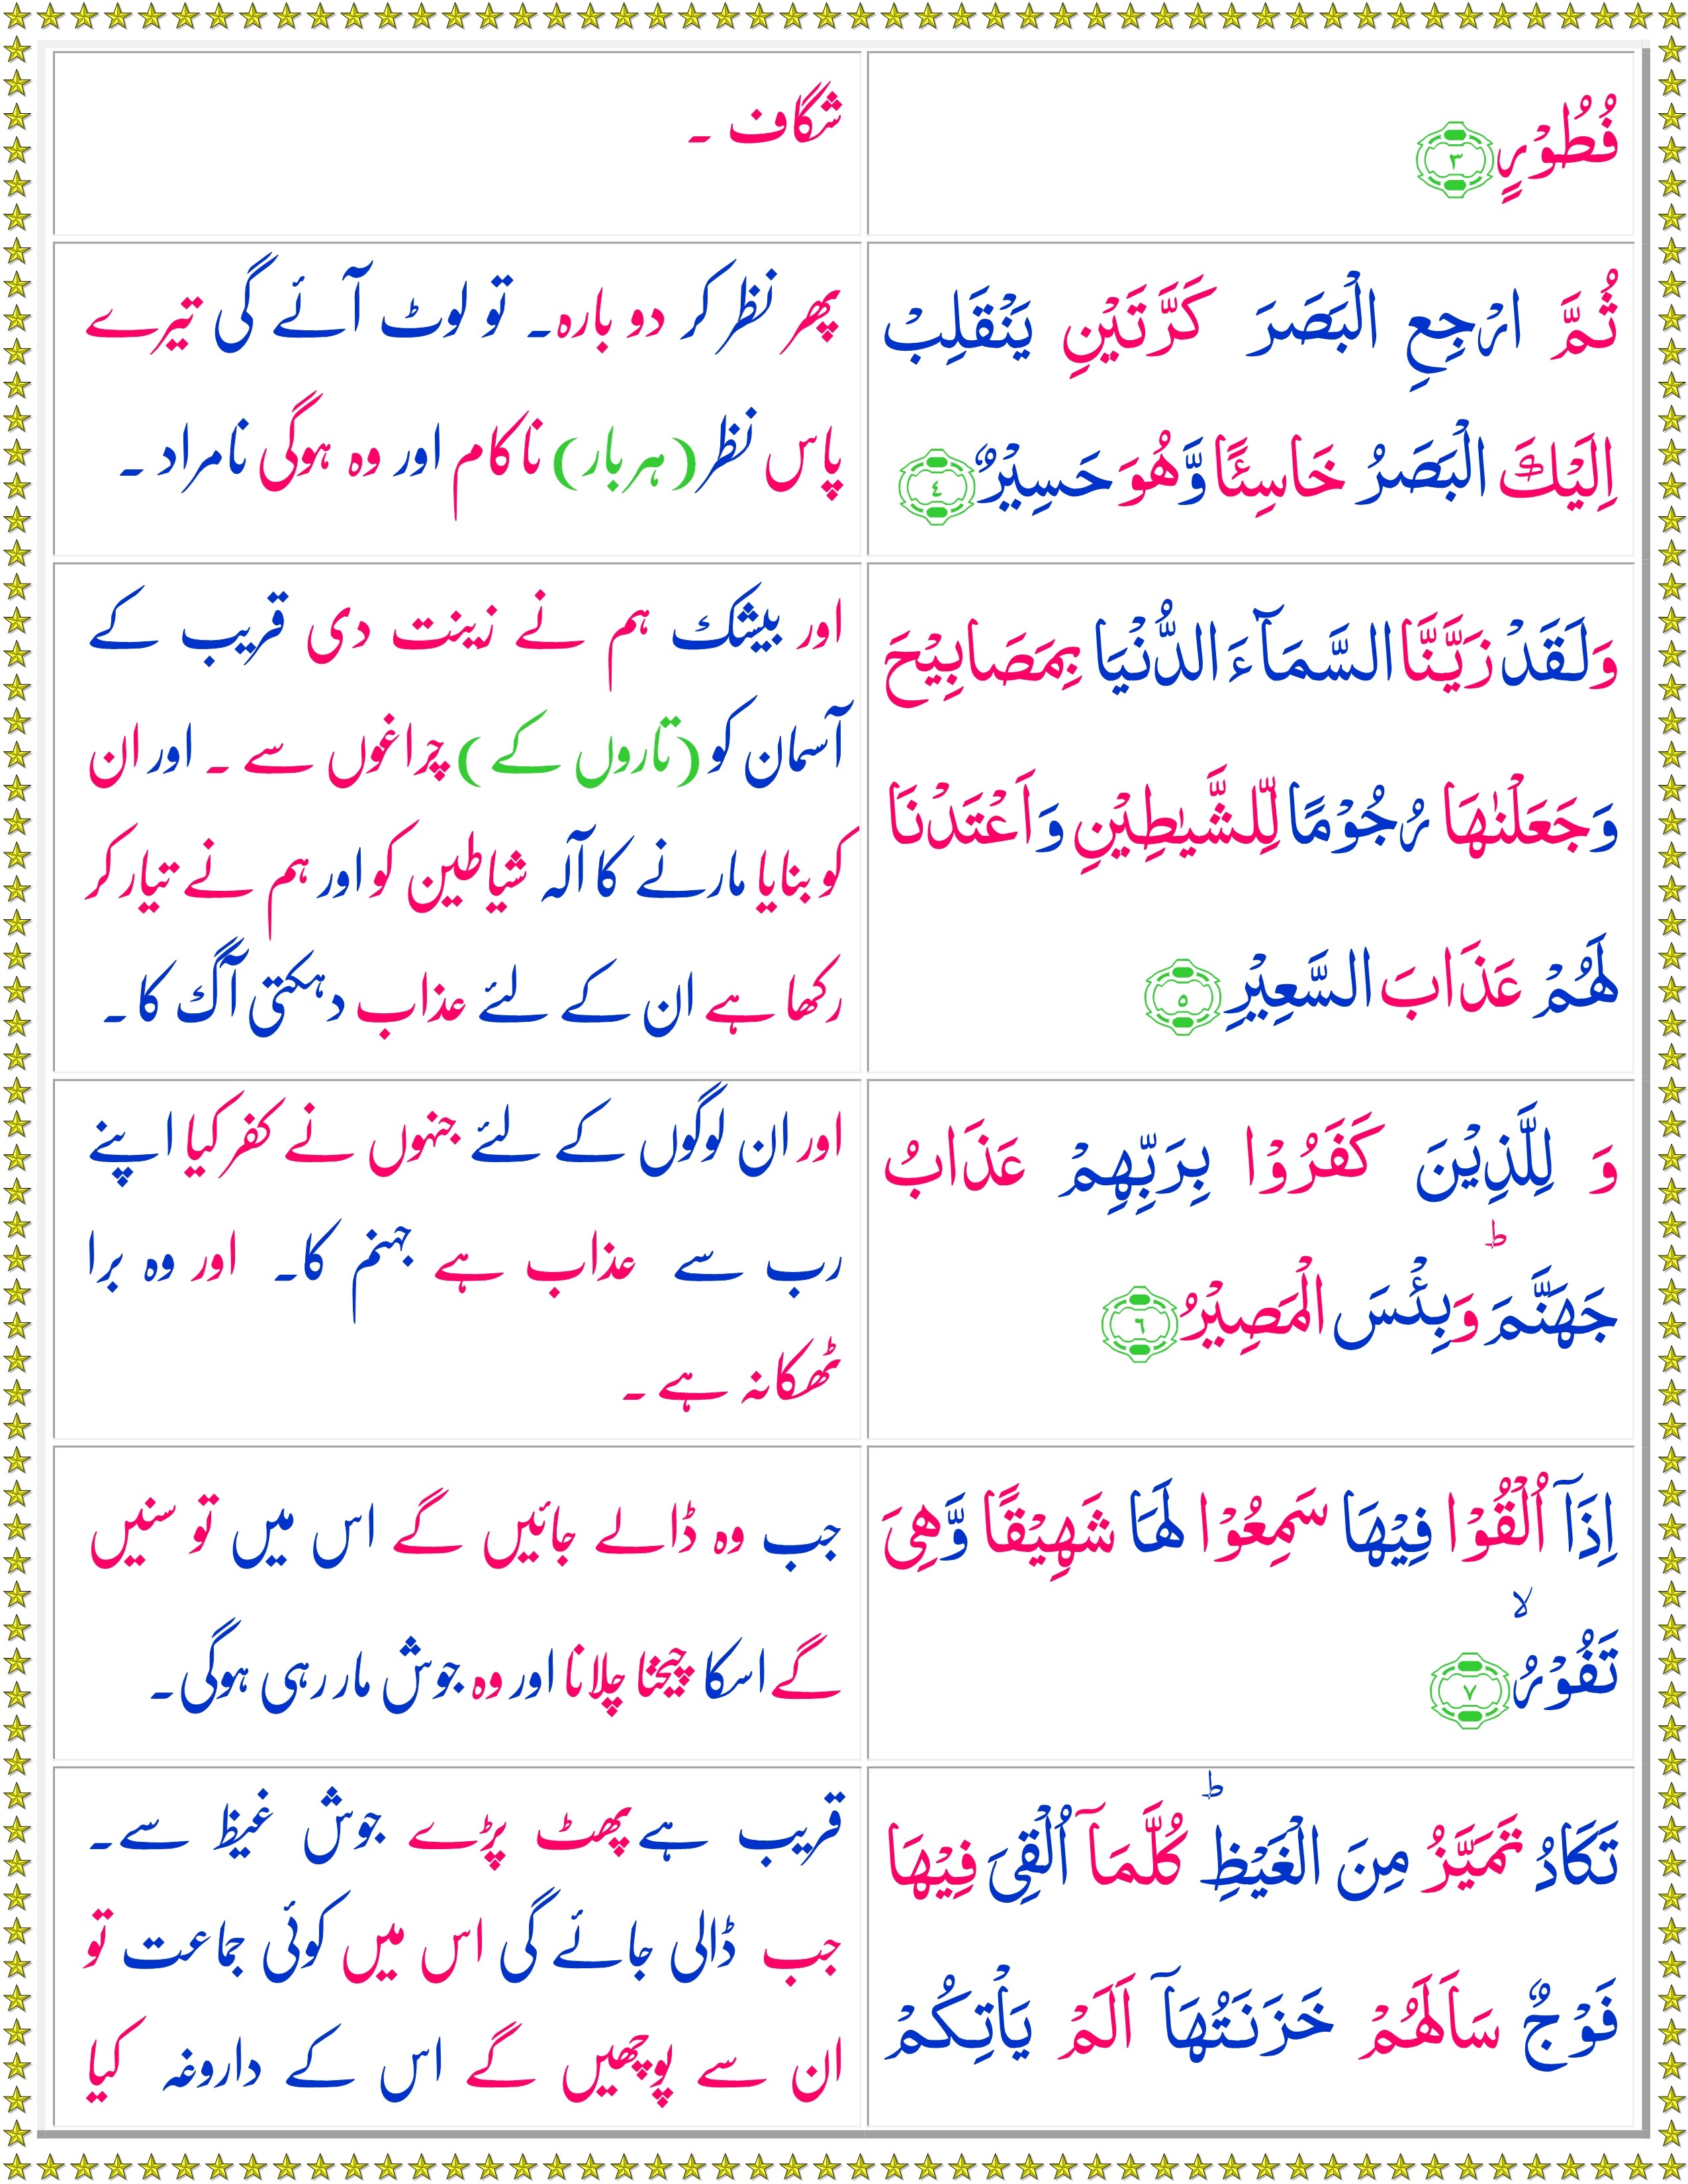 فُطُوْرٍ ﴿٣﴾
شگاف ۔
ثُمَّ ارْجِعِ الْبَصَرَ كَرَّتَيْنِ يَنْقَلِبْ
اِلَيْكَ الْبَصَرُ خَاسِئًا وَّهُوَ حَسِيْرٌ ﴿٤﴾
پھر نظر کر دو بارہ۔ تو لوٹ آئے گی تیرے
پاس نظر (ہر بار) ناکام اور وہ ہوگی نامراد ۔
وَلَقَدْ زَيَّنَّا السَّمَآءَ الدُّنْيَا بِمَصَابِيْحَ
وَجَعَلْنٰهَا رُجُوْمًا لِّلشَّيٰطِيْنِ وَاَعْتَدْنَا
لَهُمْ عَذَابَ السَّعِيْرِ ﴿٥﴾
اور بیشک ہم نے زینت دی قریب کے
آسمان کو (تاروں کے) چراغوں سے ۔ اور ان
کو بنایا مارنے کا آلہ شیاطین کو اور ہم نے تیار کر
رکھا ہے ان کے لئے عذاب دہکتی آگ کا ۔
وَ لِلَّذِيْنَ كَفَرُوْا بِرَبِّهِمْ عَذَابُ
جَهَنَّمَ ؕ وَبِئْسَ الْمَصِيْرُ ﴿٦﴾
اور ان لوگوں کے لئے جنہوں نے کفر کیا اپنے
رب سے عذاب ہے جہنم کا۔ اور وہ برا
ٹھکانہ ہے ۔
اِذَآ اُلْقُوْا فِيْهَا سَمِعُوْا لَهَا شَهِيْقًا وَّهِىَ
تَفُوْرُ ۙ ﴿٧﴾
جب وہ ڈالے جائیں گے اس میں تو سنیں
گے اسکا چیخنا چلانا اور وہ جوش مار رہی ہوگی۔
تَكَادُ تَمَيَّزُ مِنَ الْغَيْظِ ؕ كُلَّمَآ اُلْقِىَ فِيْهَا
فَوْجٌ سَاَلَهُمْ خَزَنَتُهَآ اَلَمْ يَاْتِكُمْ
قریب ہے پھٹ پڑے جوش غیظ سے۔
جب ڈالی جائے گی اس میں کوئی جماعت تو
ان سے پوچھیں گے اس کے داروغہ کیا